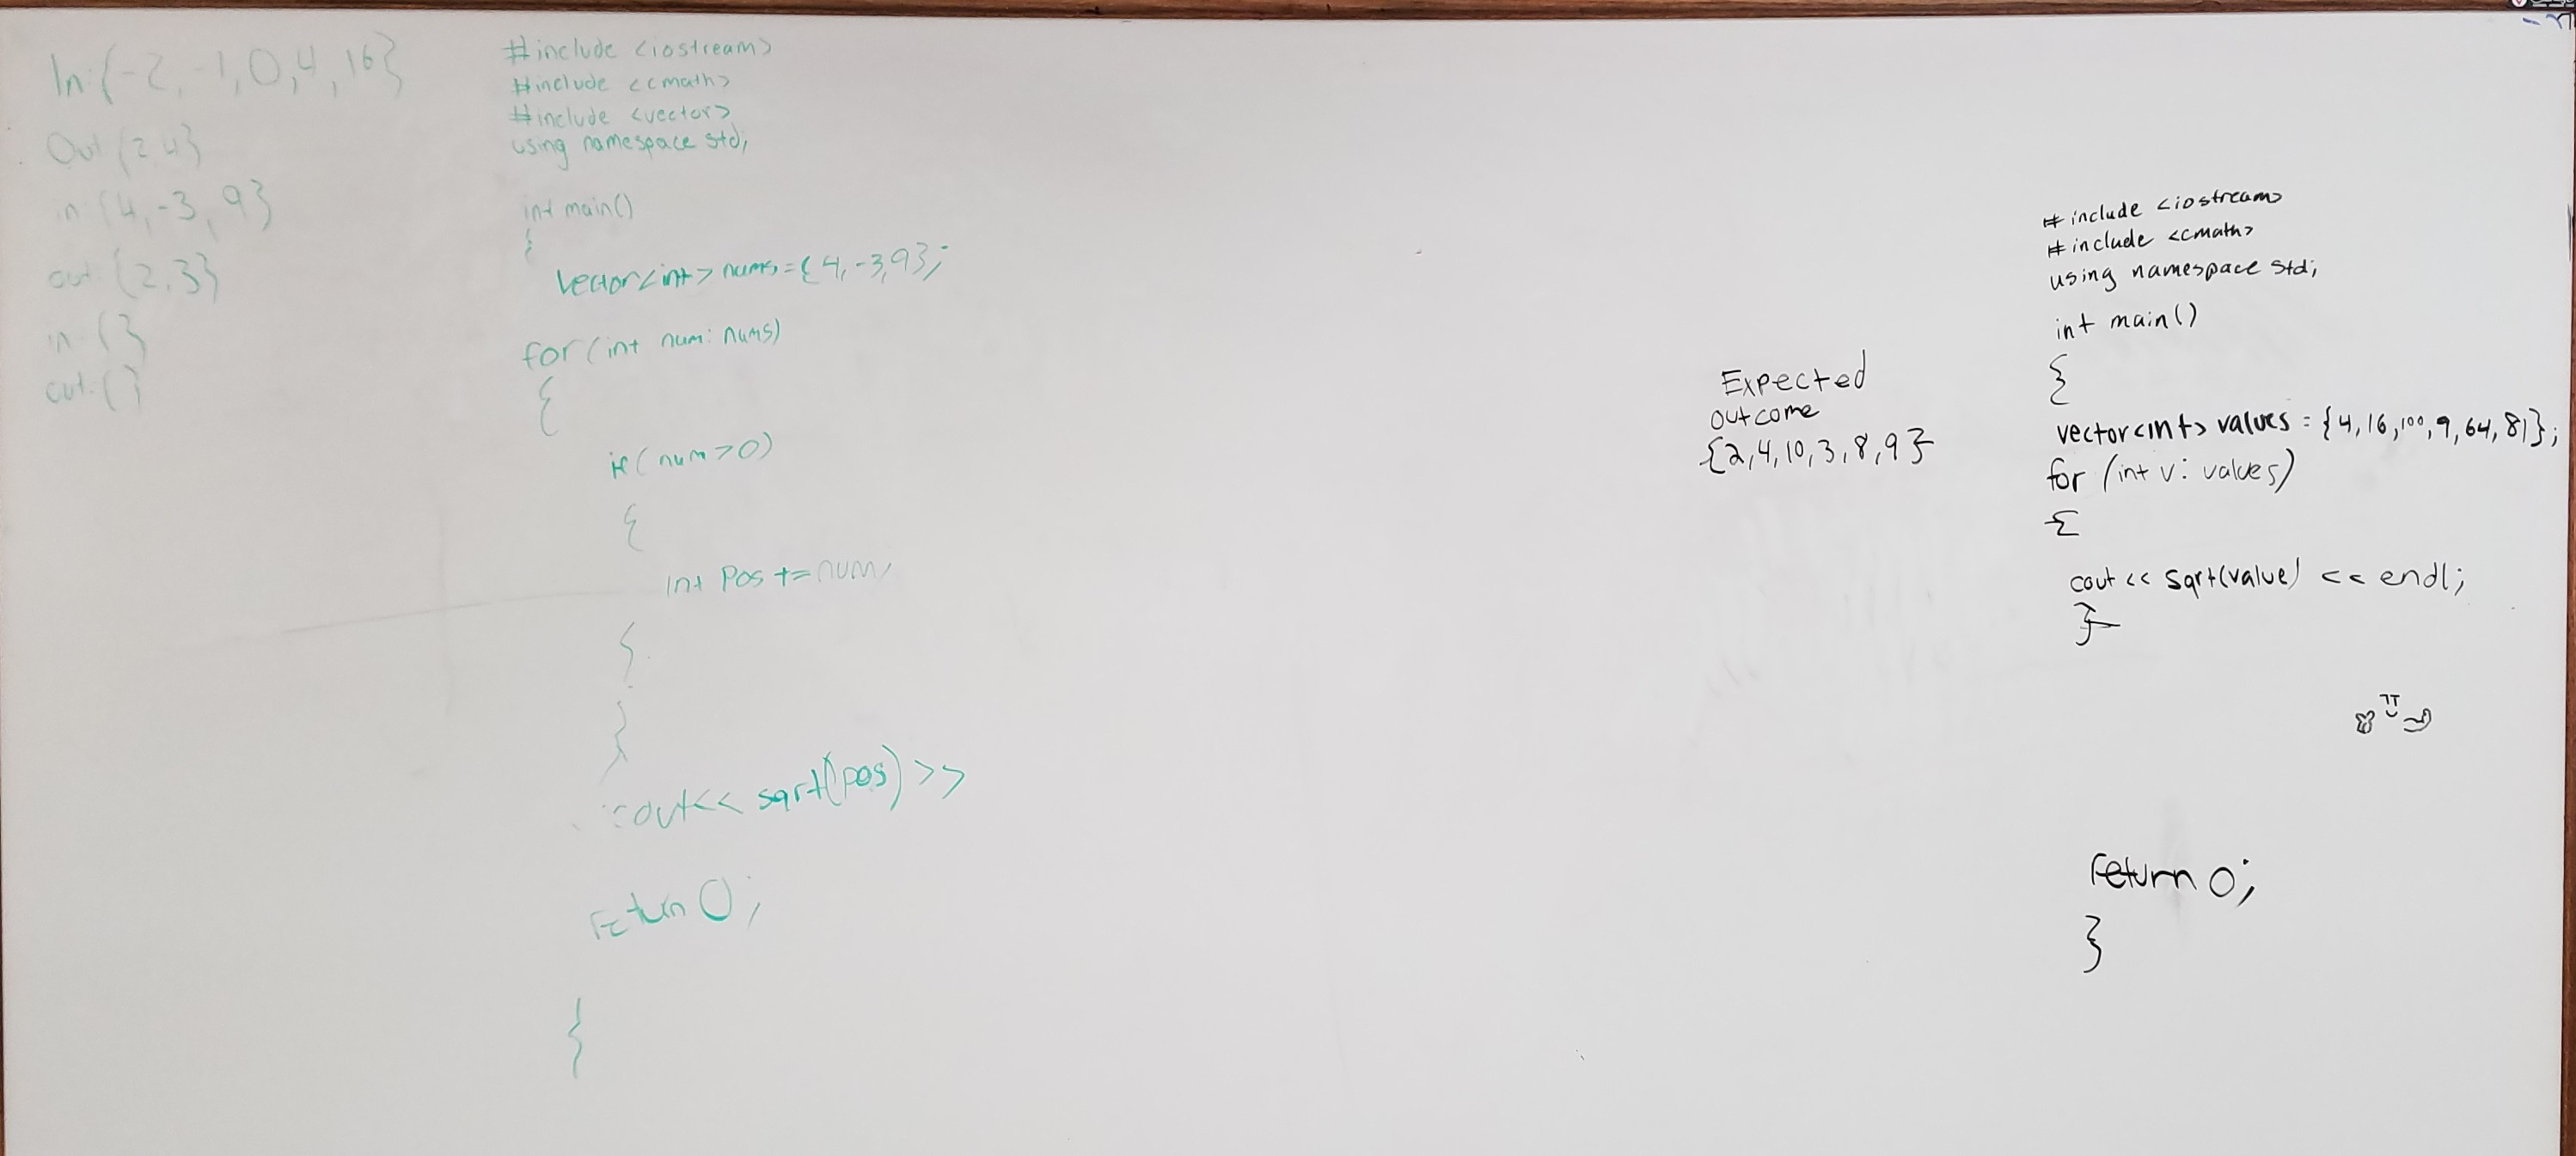 In:{-2,-1,0,4,16}
Out {2,4}
in {4,-3,9}
out: {2,3}
in: { }
out: { }
#include <iostream>
#include <cmath>
#include <vector>
using namespace std;
int main()
{
vector<int> nums={4,-3,9};
for (int num: nums)
{
if (num>0)
{
int pos += num;
}
}
cout<< sqrt(pos) >>
return 0;
}
Expected
outcome
{2,4,10,3,8,9}
#include <iostream>
#include <cmath>
using namespace std;
int main()
{
vector<int> values = {4,16,100,9,64,81};
for (int v: values)
{
cout << sqrt(value) << endl;
}
return 0;
}